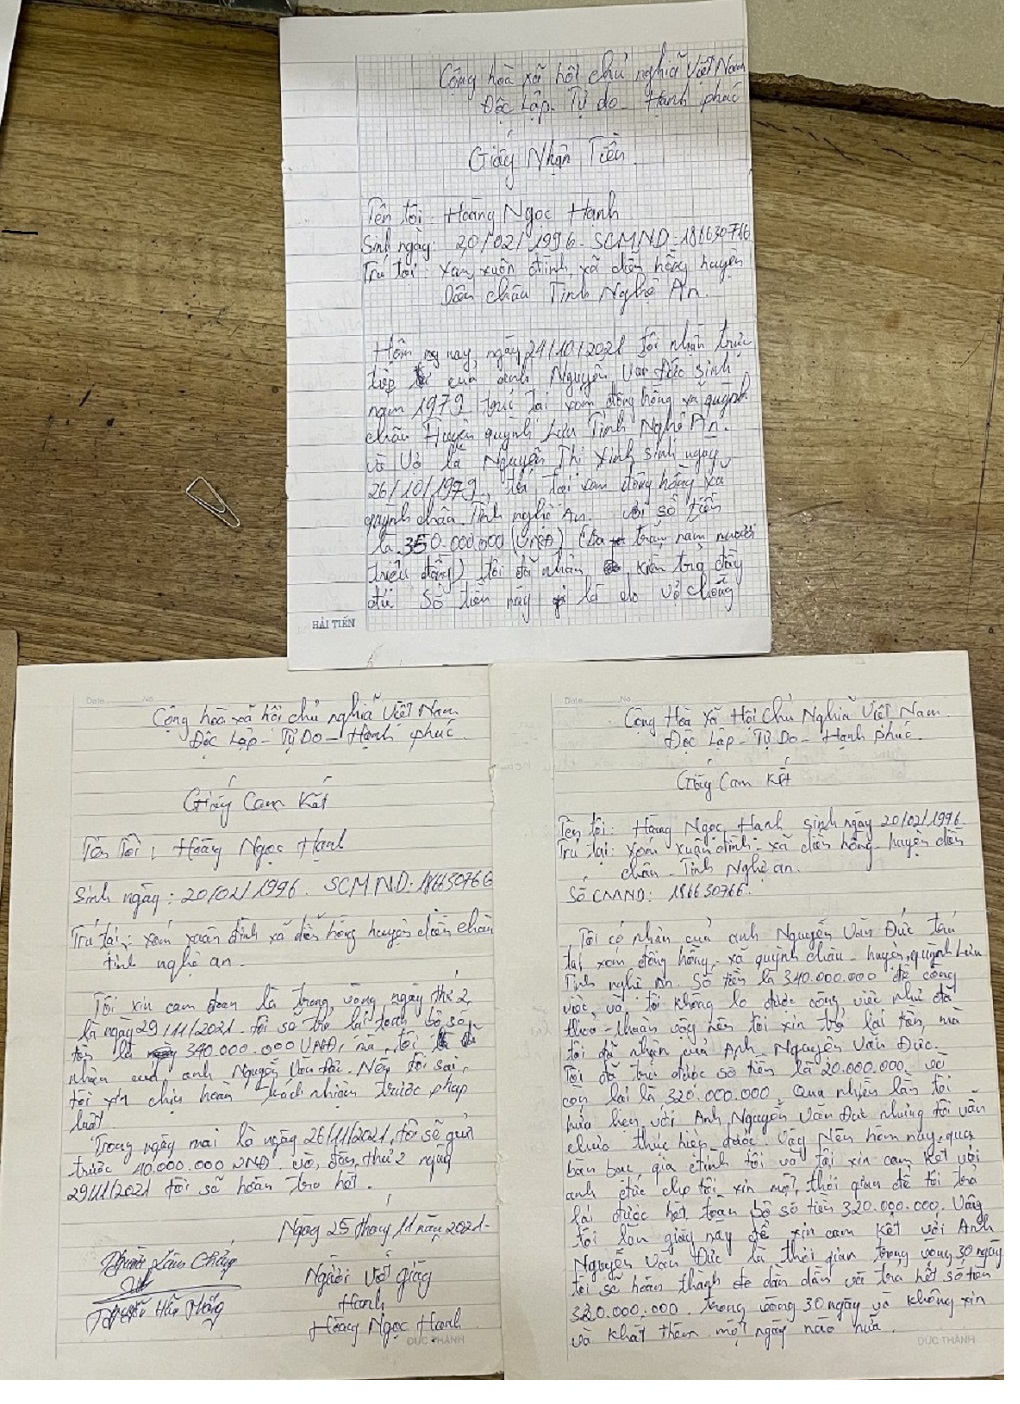 Cộng hòa xã hội chủ nghĩa Việt Nam
Độc Lập - Tự do - Hạnh phúc
Giấy Nhận Tiền
Tên tôi: Hoàng Ngọc Hạnh
Sinh ngày: 20/02/1996. SCMND. 186630766
Trú tại: xóm xuân đình, xã diễn hồng huyện
Diễn châu Tỉnh Nghệ An.
Hôm nay, ngày 24/10/2021 tôi nhận trực
tiếp của anh Nguyễn Văn Đức sinh
năm 1979 trú tại xóm đồng hồng xã quỳnh
châu Huyện quỳnh Lưu Tỉnh Nghệ An.
và Vợ là Nguyễn Thị Xinh sinh ngày
26/10/1979, trú tại xóm đồng hồng xã
quỳnh châu Tỉnh nghệ An. với số tiền
là 350.000.000 (VNĐ) (Ba trăm năm mươi
triệu đồng) tôi đã nhận kiểm tra đầy
đủ số tiền này là do vợ chồng
HẢI TIẾN
Cộng hòa xã hôi chủ nghĩa Việt Nam
Độc Lập - Tự Do - Hạnh phúc.
Giấy Cam Kết
Tên Tôi: Hoàng Ngọc Hạnh
Sinh ngày: 20/02/1996. SCMND: 186630766
Trú tại: xóm xuân đình xã diễn hồng huyện diễn châu
tỉnh nghệ an.
Tôi xin cam đoan là trong vòng ngày thứ 2
là ngày 29/11/2021. tôi sẽ trả lại toàn bộ số
tiền là 340.000.000 VNĐ, mà tôi đã
nhận của anh Nguyễn Văn Đức. Nếu tôi sai,
tôi xin chịu hoàn trách nhiệm trước pháp
luật.
Trong ngày mai là ngày 26/11/2021, tôi sẽ gửi
trước 40.000.000 VNĐ. và, đến thứ 2 ngày
29/11/2021 tôi sẽ hoàn trả hết.
Ngày 25 tháng 11 năm 2021-
Người viết giấy
Hạnh
Hoàng Ngọc Hạnh
ĐỨC THÀNH
Cộng Hòa Xã Hội Chủ Nghĩa Việt Nam
Độc Lập - Tự Do - Hạnh phúc.
Giấy Cam Kết
Tên tôi: Hoàng Ngọc Hạnh sinh ngày 20/02/1996.
Trú tại: xóm xuân đình - xã diễn hồng - huyện diễn
châu - Tỉnh Nghệ an.
Số CMND: 186630766.
Tôi có nhận của anh Nguyễn Văn Đức trú
tại xóm đồng hồng - xã quỳnh châu - huyện quỳnh Lưu
Tỉnh nghệ An. Số tiền là 340.000.000 để công
việc, và tôi không lo được công việc như đã
thỏa thuận vậy nên tôi xin trả lại tiền, mà
tôi đã nhận của Anh Nguyễn Văn Đức.
Tôi đã trả được số tiền là 20.000.000 và
còn lại là 320.000.000 Qua nhiều lần tôi
hứa hẹn với Anh Nguyễn Văn Đức nhưng tôi vẫn
chưa thực hiện được. Vậy Nên hôm nay, qua
bàn bạc gia đình tôi và tôi xin cam kết với
anh đức cho tôi xin một thời gian để tôi trả
lại được hết toàn bộ số tiền 320.000.000. Vâng
tôi làm giấy này để xin cam kết với Anh
Nguyễn Văn Đức là thời gian trong vòng 30 ngày
tôi sẽ hoàn thành để dần dần và trả hết số tiền
320.000.000. trong vòng 30 ngày và không xin
và khất thêm một ngày nào nữa.
ĐỨC THÀNH